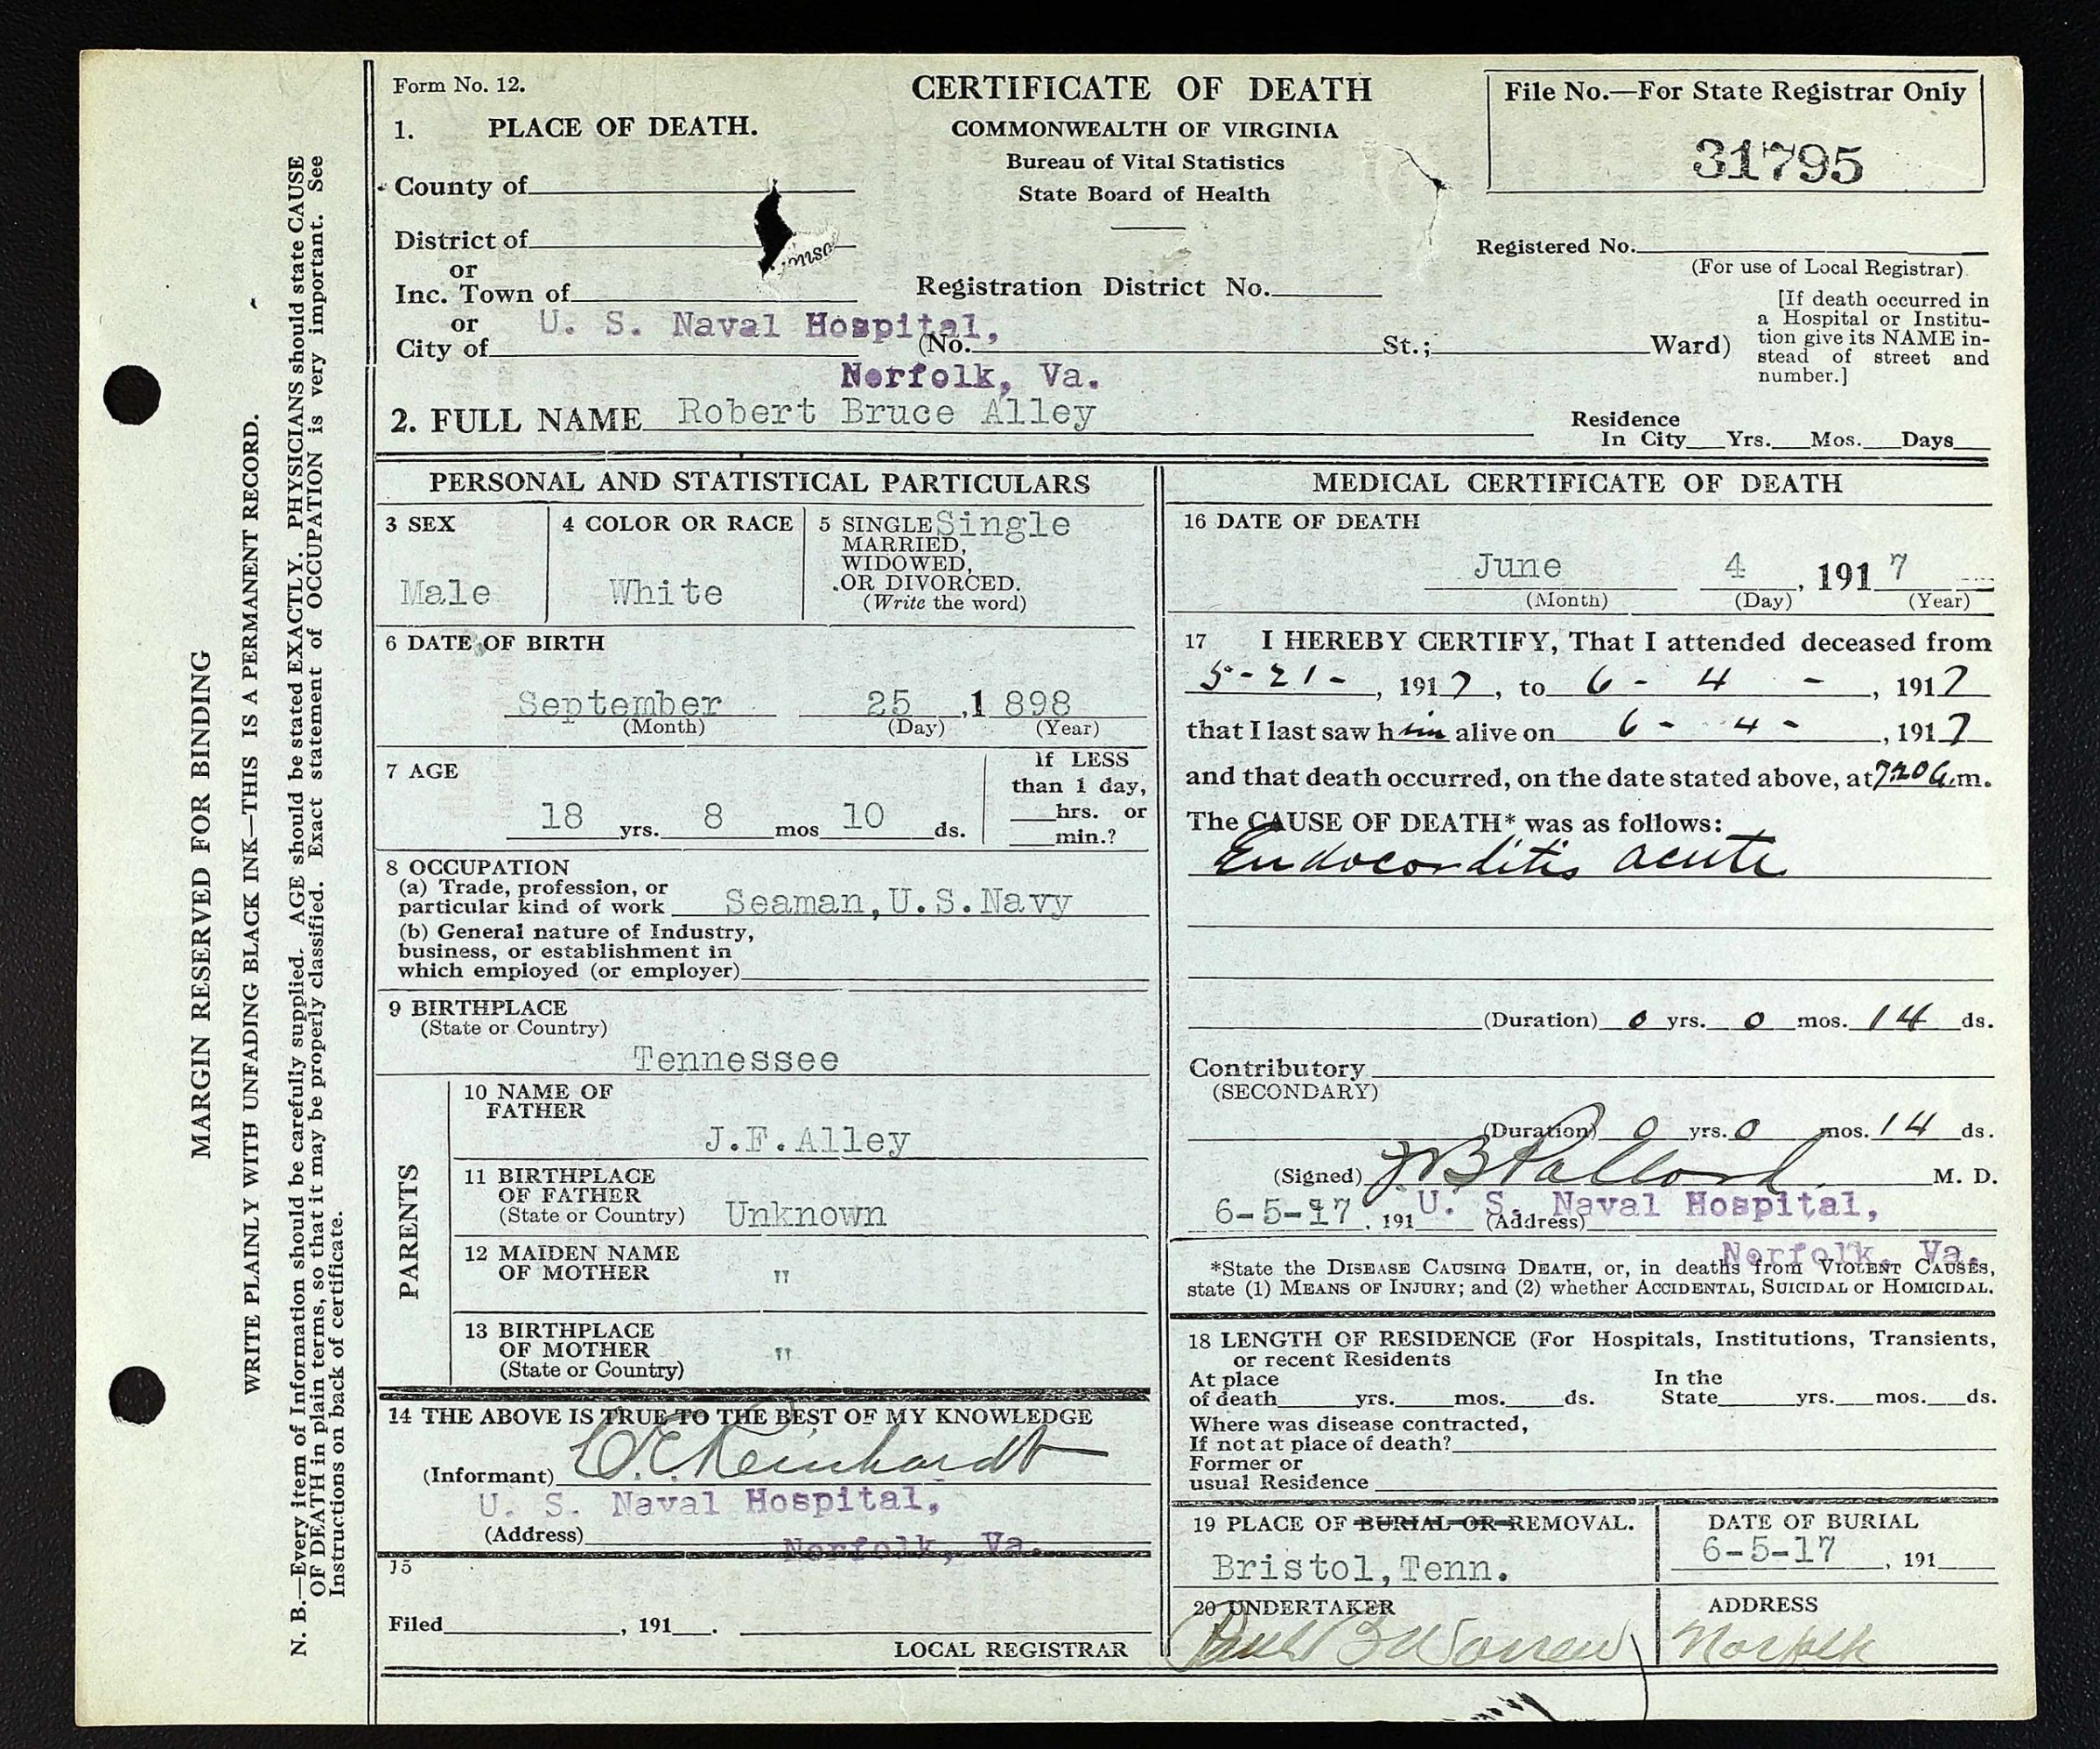 MARGIN RESERVED FOR BINDING
WRITE PLAINLY WITH UNFADING BLACK INK—THIS IS A PERMANENT RECORD.
N. B.—Every item of Information should be carefully supplied. AGE should be stated EXACTLY. PHYSICIANS should state CAUSE
OF DEATH in plain terms, so that it may be properly classified. Exact statement of OCCUPATION is very important. See
Instructions on back of certificate.
Form No. 12.
1. PLACE OF DEATH.
County of
District of
or
Inc. Town of
or
City of U. S. Naval Hospital,
(No. St.; Ward)
Norfolk, Va.
CERTIFICATE OF DEATH
COMMONWEALTH OF VIRGINIA
Bureau of Vital Statistics
State Board of Health
Registration District No.
File No.—For State Registrar Only
31795
Registered No.
(For use of Local Registrar)
[If death occurred in
a Hospital or Institu-
tion give its NAME in-
stead of street and
number.]
2. FULL NAME Robert Bruce Alley
Residence
In City Yrs. Mos. Days
PERSONAL AND STATISTICAL PARTICULARS
3 SEX
Male
4 COLOR OR RACE
White
5 SINGLE Single
MARRIED,
WIDOWED,
OR DIVORCED.
(Write the word)
6 DATE OF BIRTH
September 25 ,1 898
(Month) (Day) (Year)
7 AGE
18 yrs. 8 mos 10 ds.
If LESS
than 1 day,
hrs. or
min.?
8 OCCUPATION
(a) Trade, profession, or
particular kind of work Seaman, U.S.Navy
(b) General nature of Industry,
business, or establishment in
which employed (or employer)
9 BIRTHPLACE
(State or Country)
Tennessee
PARENTS
10 NAME OF
FATHER
J.F.Alley
11 BIRTHPLACE
OF FATHER
(State or Country) Unknown
12 MAIDEN NAME
OF MOTHER "
13 BIRTHPLACE
OF MOTHER "
(State or Country)
14 THE ABOVE IS TRUE TO THE BEST OF MY KNOWLEDGE
(Informant) Reinhardt
U. S. Naval Hospital,
(Address)
Norfolk, Va.
15
Filed , 191 .
LOCAL REGISTRAR
MEDICAL CERTIFICATE OF DEATH
16 DATE OF DEATH
June 4 , 191 7
(Month) (Day) (Year)
17 I HEREBY CERTIFY, That I attended deceased from
5-21- , 1917, to 6 - 4 - , 1917
that I last saw him alive on 6 - 4 - , 1917
and that death occurred, on the date stated above, at 720 a.m.
The CAUSE OF DEATH* was as follows:
Endocorditis acute
(Duration) 0 yrs. 0 mos. 14 ds.
Contributory
(SECONDARY)
(Duration) 0 yrs. 0 mos. 14 ds.
(Signed) M. D.
6-5-17 , 191 U. S. Naval Hospital,
(Address)
Norfolk, Va.
*State the DISEASE CAUSING DEATH, or, in deaths from VIOLENT CAUSES,
state (1) MEANS OF INJURY; and (2) whether ACCIDENTAL, SUICIDAL or HOMICIDAL.
18 LENGTH OF RESIDENCE (For Hospitals, Institutions, Transients,
or recent Residents
At place In the
of death yrs. mos. ds. State yrs. mos. ds.
Where was disease contracted,
If not at place of death?
Former or
usual Residence
19 PLACE OF BURIAL OR REMOVAL.
Bristol,Tenn.
DATE OF BURIAL
6-5-17 , 191
20 UNDERTAKER
ADDRESS
Norfolk